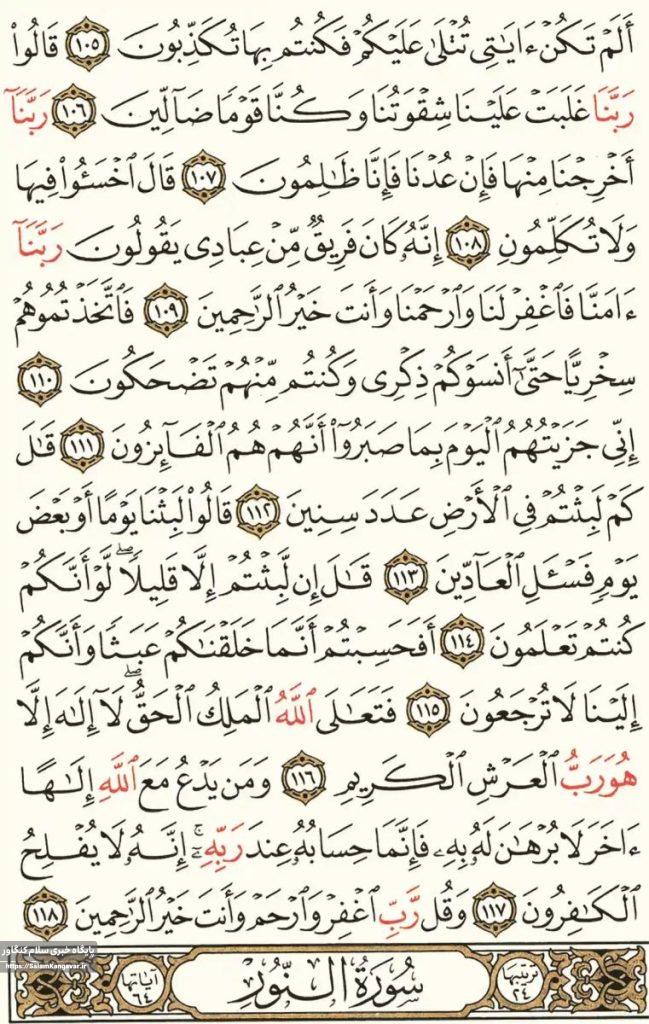 أَلَمْ تَكُنْ ءَايَٰتِى تُتْلَىٰ عَلَيْكُمْ فَكُنتُم بِهَا تُكَذِّبُونَ ١٠٥ قَالُوا۟
رَبَّنَا غَلَبَتْ عَلَيْنَا شِقْوَتُنَا وَكُنَّا قَوْمًا ضَآلِّينَ ١٠٦ رَبَّنَآ
أَخْرِجْنَا مِنْهَا فَإِنْ عُدْنَا فَإِنَّا ظَٰلِمُونَ ١٠٧ قَالَ ٱخْسَـُٔوا۟ فِيهَا
وَلَا تُكَلِّمُونِ ١٠٨ إِنَّهُۥ كَانَ فَرِيقٌ مِّنْ عِبَادِى يَقُولُونَ رَبَّنَآ
ءَامَنَّا فَٱغْفِرْ لَنَا وَٱرْحَمْنَا وَأَنتَ خَيْرُ ٱلرَّٰحِمِينَ ١٠٩ فَٱتَّخَذْتُمُوهُمْ
سِخْرِيًّا حَتَّىٰٓ أَنسَوْكُمْ ذِكْرِى وَكُنتُم مِّنْهُمْ تَضْحَكُونَ ١١٠
إِنِّى جَزَيْتُهُمُ ٱلْيَوْمَ بِمَا صَبَرُوٓا۟ أَنَّهُمْ هُمُ ٱلْفَآئِزُونَ ١١١ قَٰلَ
كَمْ لَبِثْتُمْ فِى ٱلْأَرْضِ عَدَدَ سِنِينَ ١١٢ قَالُوا۟ لَبِثْنَا يَوْمًا أَوْ بَعْضَ
يَوْمٍ فَسْـَٔلِ ٱلْعَآدِّينَ ١١٣ قَٰلَ إِن لَّبِثْتُمْ إِلَّا قَلِيلًا ۖ لَّوْ أَنَّكُمْ
كُنتُمْ تَعْلَمُونَ ١١٤ أَفَحَسِبْتُمْ أَنَّمَا خَلَقْنَٰكُمْ عَبَثًا وَأَنَّكُمْ
إِلَيْنَا لَا تُرْجَعُونَ ١١٥ فَتَعَٰلَى ٱللَّهُ ٱلْمَلِكُ ٱلْحَقُّ ۖ لَآ إِلَٰهَ إِلَّا
هُوَ رَبُّ ٱلْعَرْشِ ٱلْكَرِيمِ ١١٦ وَمَن يَدْعُ مَعَ ٱللَّهِ إِلَٰهًا
ءَاخَرَ لَا بُرْهَٰنَ لَهُۥ بِهِۦ فَإِنَّمَا حِسَابُهُۥ عِندَ رَبِّهِۦٓ ۚ إِنَّهُۥ لَا يُفْلِحُ
ٱلْكَٰفِرُونَ ١١٧ وَقُل رَّبِّ ٱغْفِرْ وَٱرْحَمْ وَأَنتَ خَيْرُ ٱلرَّٰحِمِينَ ١١٨
پایگاه خبری سلام کنگاور
https://SalamKangavar.ir
ترتيبها ٢٤ سُورَةُ النُّورِ آياتها ٦٤